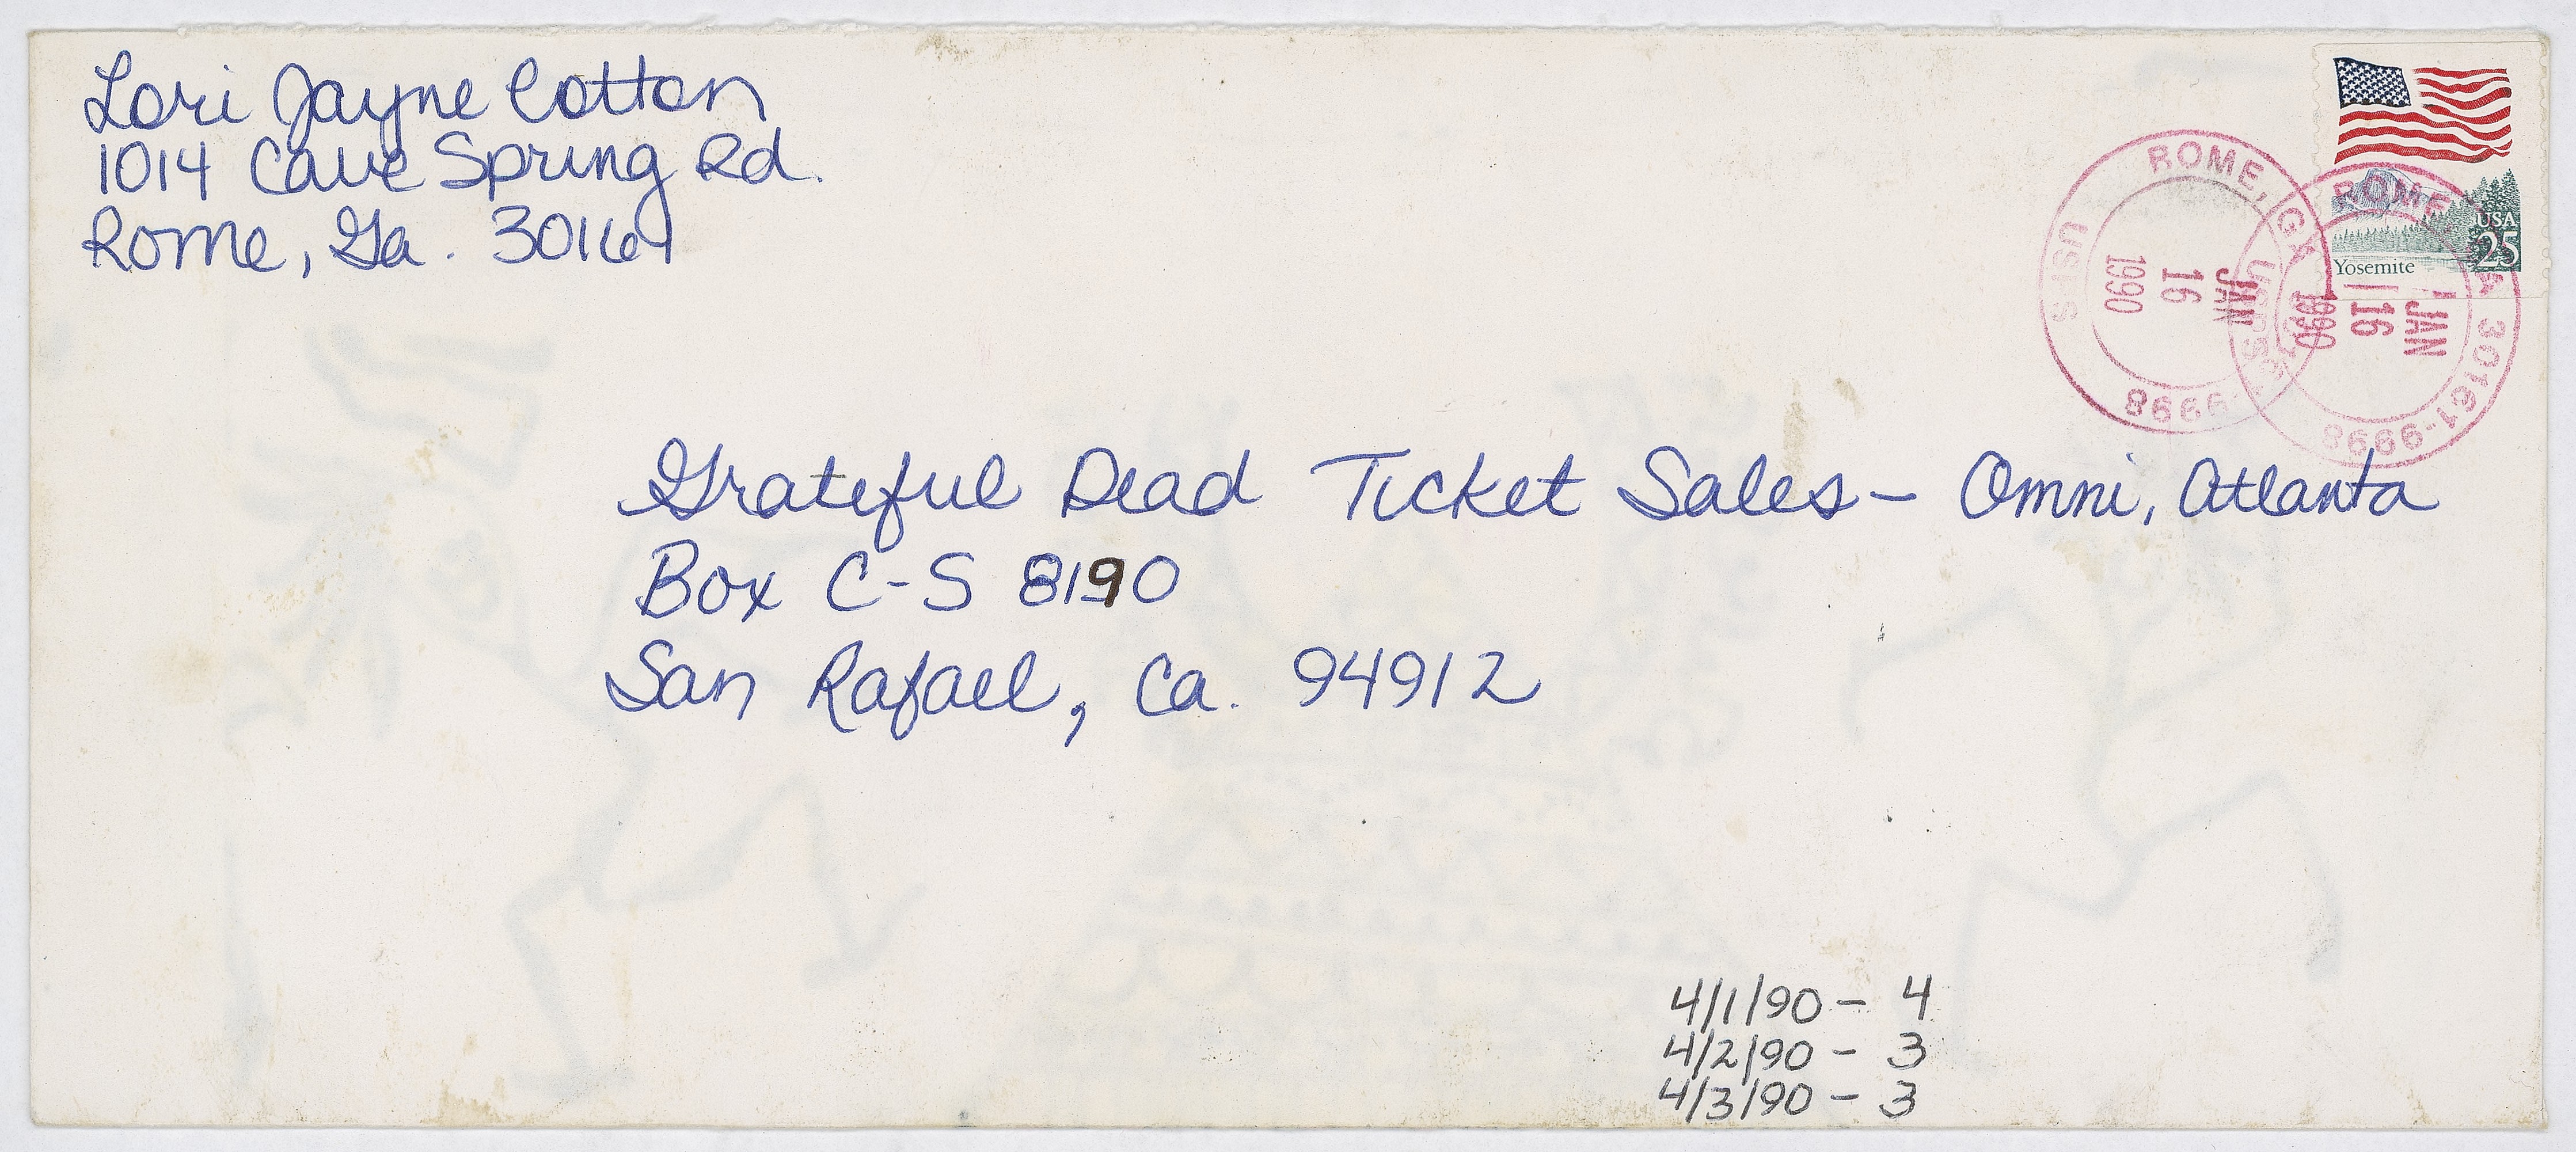 Lori Jayne Cotton
1014 Cave Spring Rd.
Rome, Ga. 30161
USA
25
Yosemite
ROME, GA
USPS
JAN
16
1990
9998
ROME, GA 30161-9998
USPS
JAN
16
1990
Grateful Dead Ticket Sales - Omni, Atlanta
Box C-S 8190
San Rafael, Ca. 94912
4/1/90 - 4
4/2/90 - 3
4/3/90 - 3